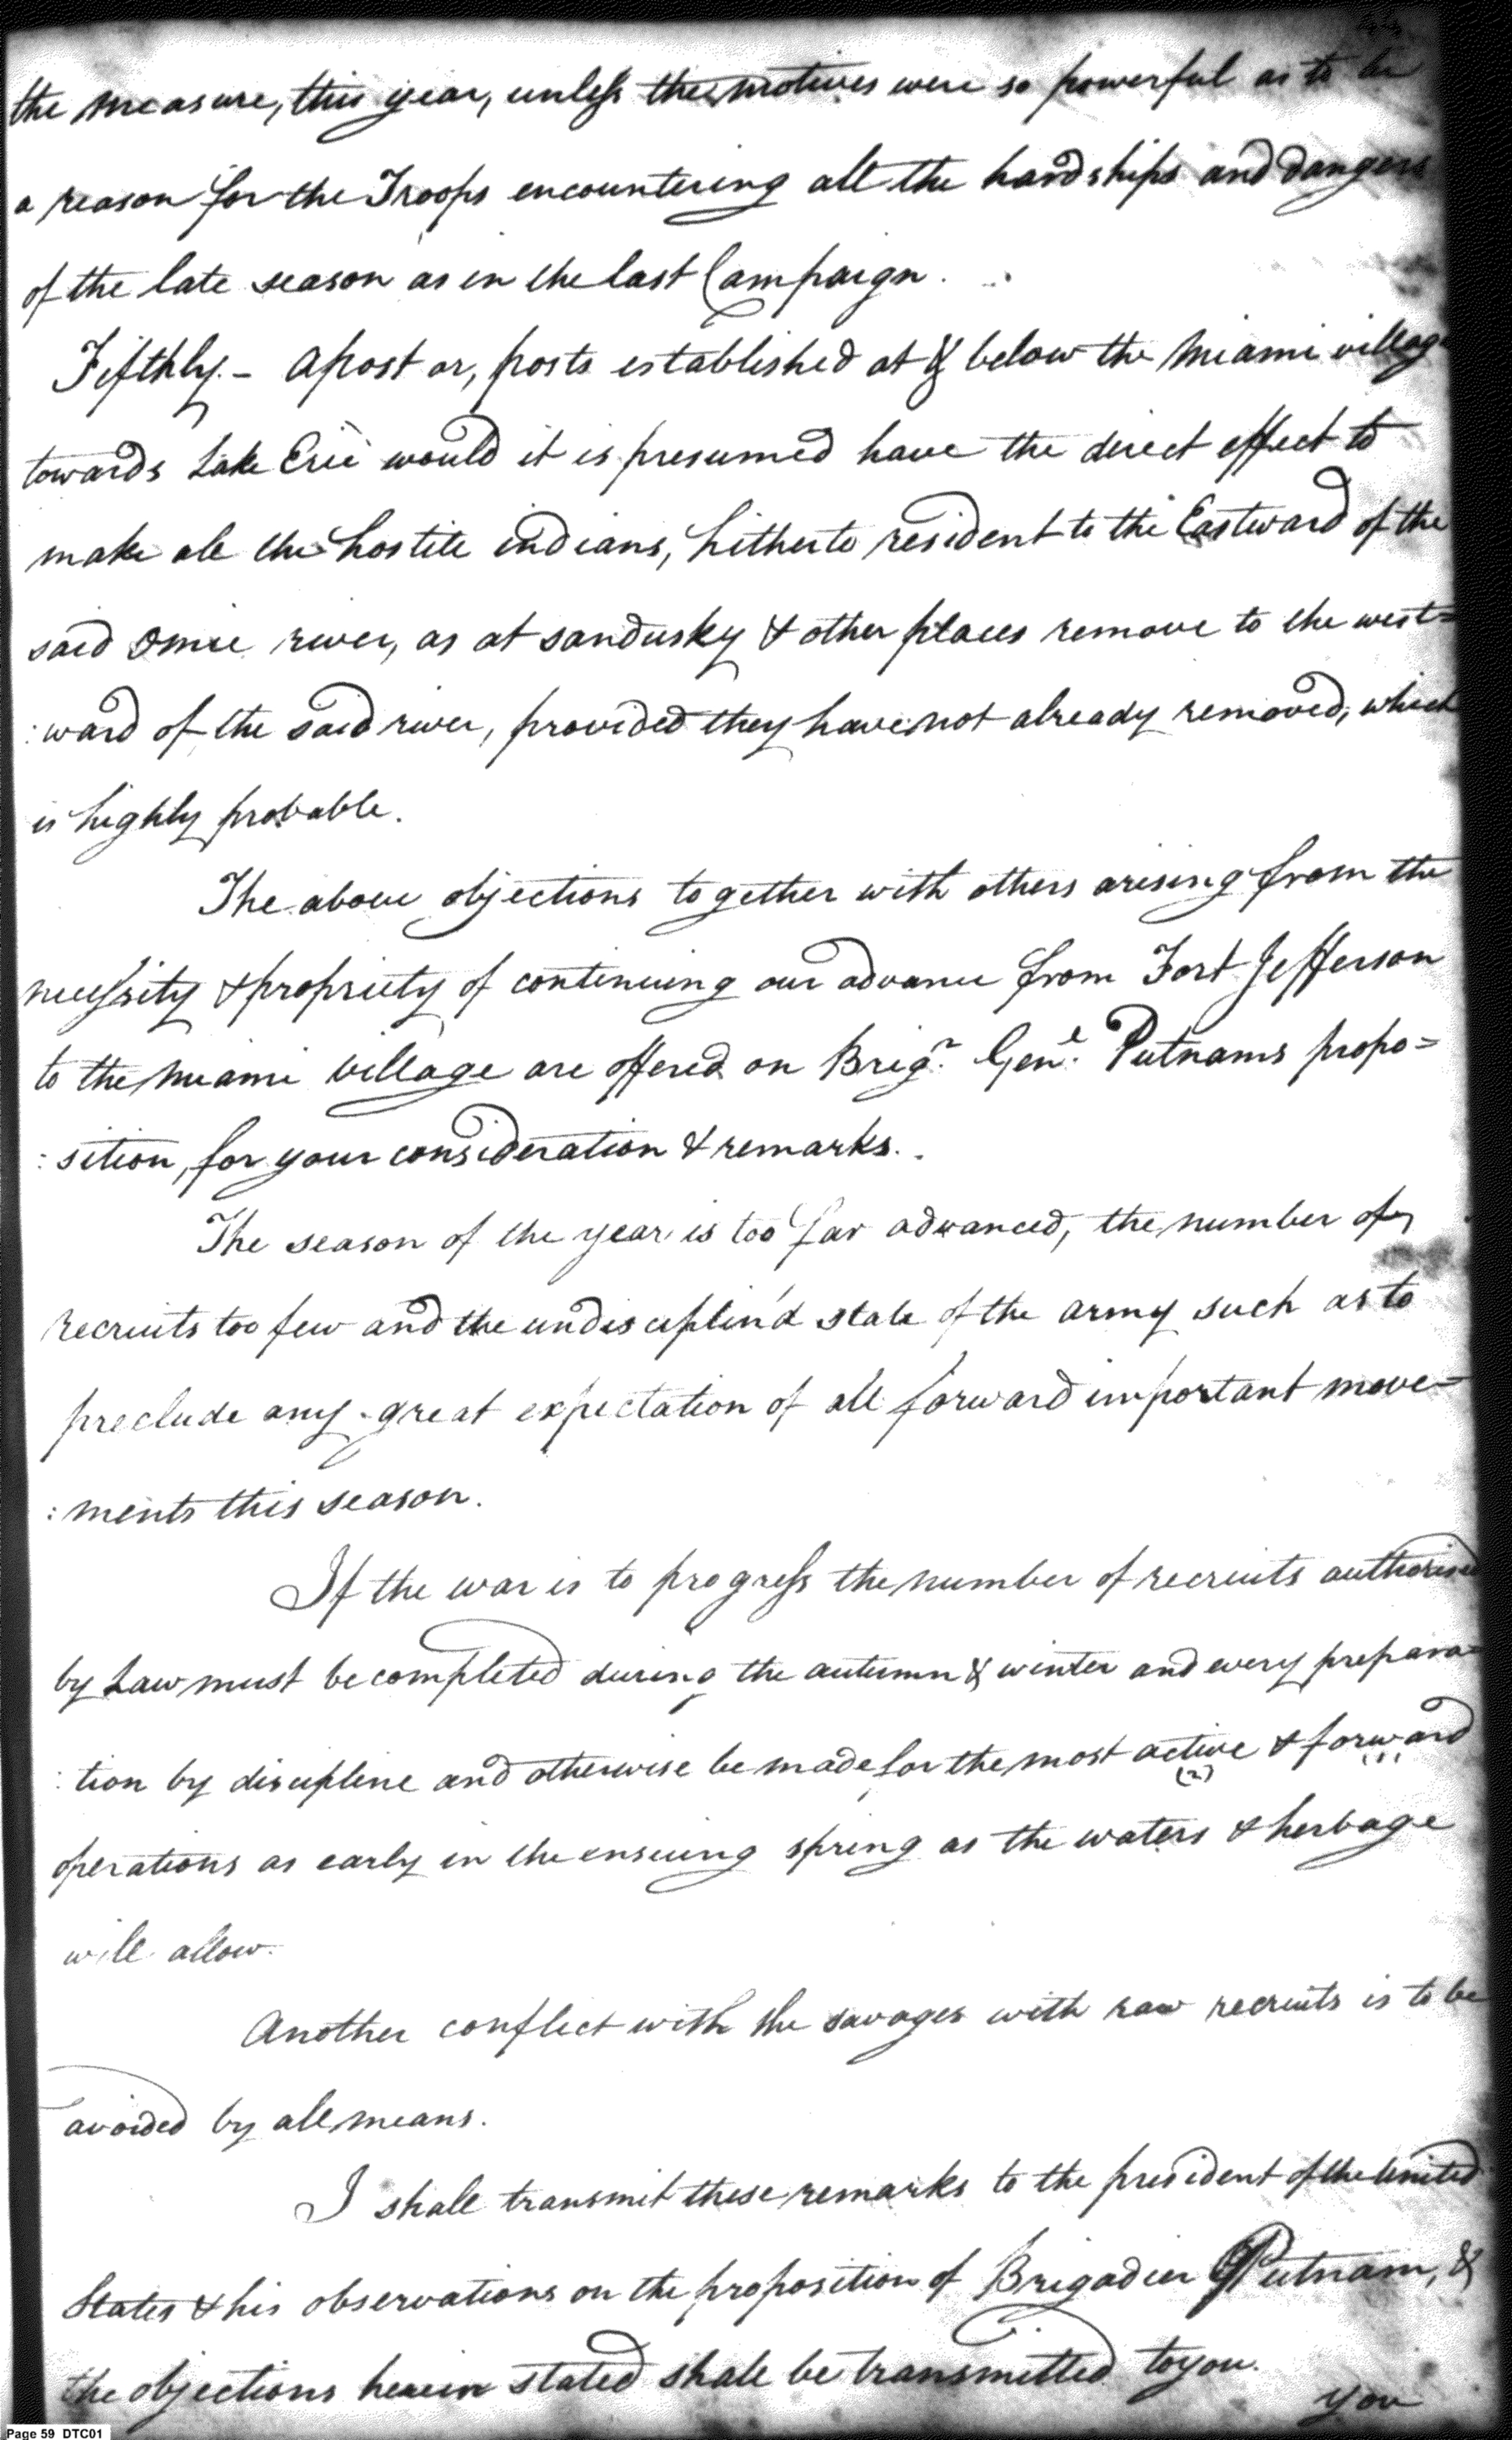 the measure, this year, unless the motives were so powerful as to be
a reason for the Troops encountering all the hardships and dangers
of the late season as in the last Campaign.
Fifthly. - A post or, posts established at & below the Miami village
towards Lake Erie would it is presumed have the direct effect to
make all the hostile indians, hitherto resident to the Eastward of the
said Omie river, as at sandusky & other places remove to the west=
:ward of the said river, provided they have not already removed, which
is highly probable.
The above objections together with others arising from the
necessity & propriety of continuing our advance from Fort Jefferson
to the Miami village are offered on Brigr. Genl. Putnams propo=
:sition, for your consideration & remarks.
The season of the year is too far advanced, the number of
recruits too few and the undisciplin'd state of the army such as to
preclude any great expectation of all forward important move=
:ments this season.
If the war is to progress the number of recruits authorised
by Law must be completed during the autumn & winter and every prepara=
:tion by discipline and otherwise be made for the most active & forward
(2)
operations as early in the ensuing spring as the waters & herbage
will allow.
Another conflict with the savages with raw recruits is to be
avoided by all means.
I shall transmit these remarks to the president of the United
States & his observations on the proposition of Brigadier Putnam, &
the objections herein stated shall be transmitted to you.
you
Page 59 DTC01